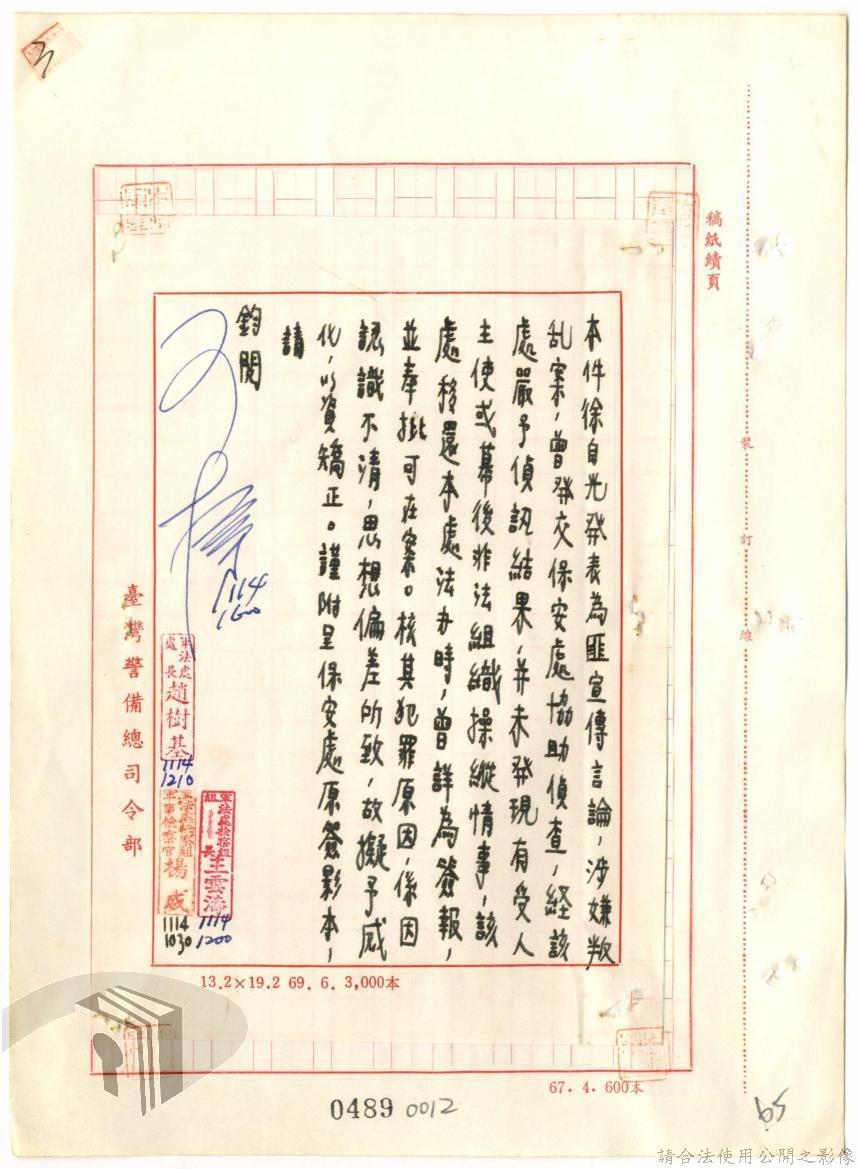 稿紙續頁
裝訂線
本件徐自光發表為匪宣傳言論，涉嫌叛
乱案，曾発交保安處協助偵查，経該
處嚴予偵訊結果，并未発現有受人
主使或幕後非法組織操縱情事，該
處移還本處法办時，曾詳為簽報，
並奉批可在案。核其犯罪原因，係因
認識不清，思想偏差所致，故擬予感
化，以資矯正。謹附呈保安處原簽影本，
請
鈞閱
1114
1600
軍法處處長趙樹基
1114
1210
王雲濤
1114
1200
軍事檢察官楊威
1114
1030
臺灣警備總司令部
13.2×19.2 69.6.3,000本
67.4.600本
0489 0012
65
請合法使用公開之影像